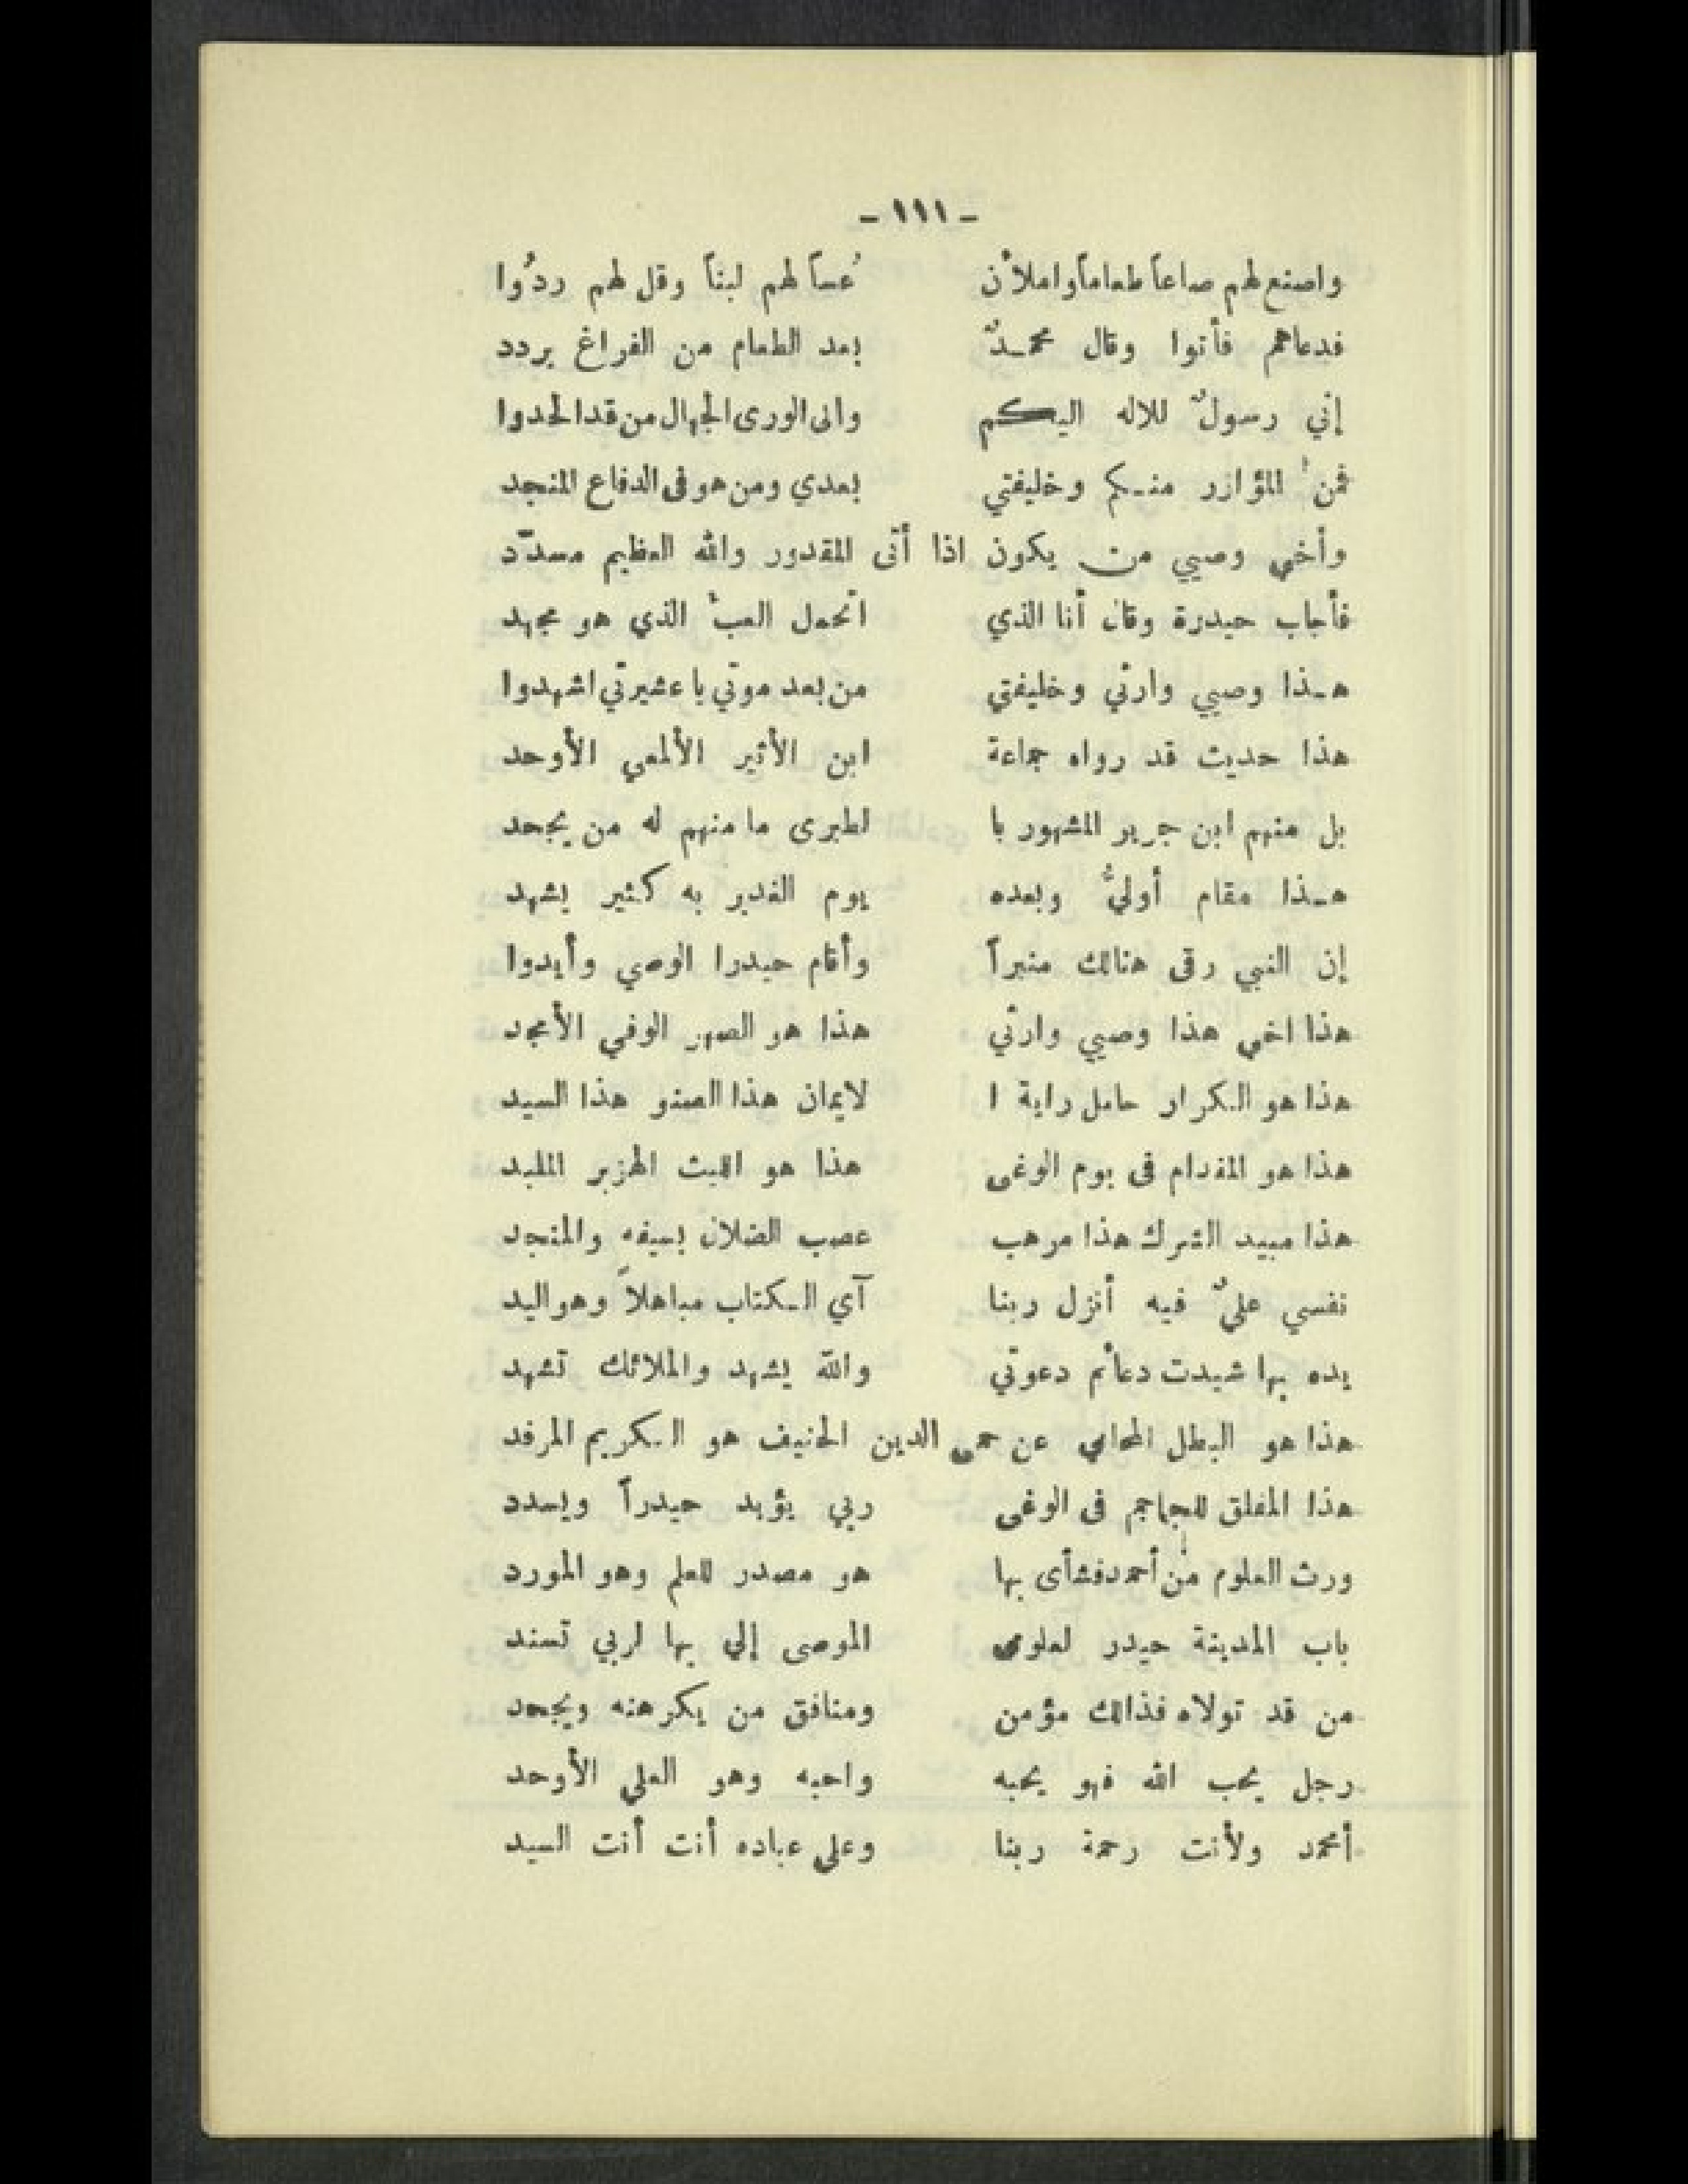 - ١١١ -
واصنع لهم صاعاً طعاماً واملأن عُساً لهم لبناً وقل لهم ردُوا
فدعاهم فأتوا وقال محمـدٌ بعد الطعام من الفراغ يردد
إني رسولٌ للاله اليكم والى الورى الجهال من قد الحدوا
فمن المؤازر منـكم وخليفتي بعدي ومن هو فى الدفاع المنجد
وأخي وصيي من يكون اذا أتى المقدور والله العظيم مسدّد
فأجاب حيدرة وقال أنا الذي اتحمل العبْ الذي هو مجهد
هـذا وصيي وارثي وخليفتي من بعد موتي يا عشيرتي اشهدوا
هذا حديث قد رواه جماعة ابن الأثير الألمعي الأوحد
بل منهم ابن جرير المشهور با لطبرى ما منهم له من يجحد
هـذا مقام أوليٌّ وبعده يوم الغدير به كثير يشهد
إن النبي رقى هنالك منبراً وأقام حيدرا الوصي وأيدوا
هذا اخي هذا وصيي وارثي هذا هو الصهر الوفي الأمجد
هذا هو الـكرار حامل راية ا لايمان هذا الصنو هذا السيد
هذا هو المقدام فى يوم الوغى هذا هو الليث الهزبر الملبد
هذا مبيد الشرك هذا مرهب عصب الضلال بسيفه والمنجد
نفسي عليٌ فيه أنزل ربنا آي الـكتاب مباهلاً وهو اليد
يده بها شيدت دعائم دعوتي والله يشهد والملائك تشهد
هذا هو البطل المحامي عن حمى الدين الحنيف هو الـكريم المرفد
هذا المفلق للجماجم فى الوغى ربي يؤيد حيدراً ويسدد
ورث العلوم من أحمد فشأى بها هو مصدر للعلم وهو المورد
باب المدينة حيدر لعلومى الموصى إلي بها لربي تسند
من قد تولاه فذالك مؤمن ومنافق من يكرهنه ويجحد
رجل يحب الله فهو يحبه واحبه وهو العلي الأوحد
أمحمد ولأنت رحمة ربنا وعلى عباده أنت أنت السيد